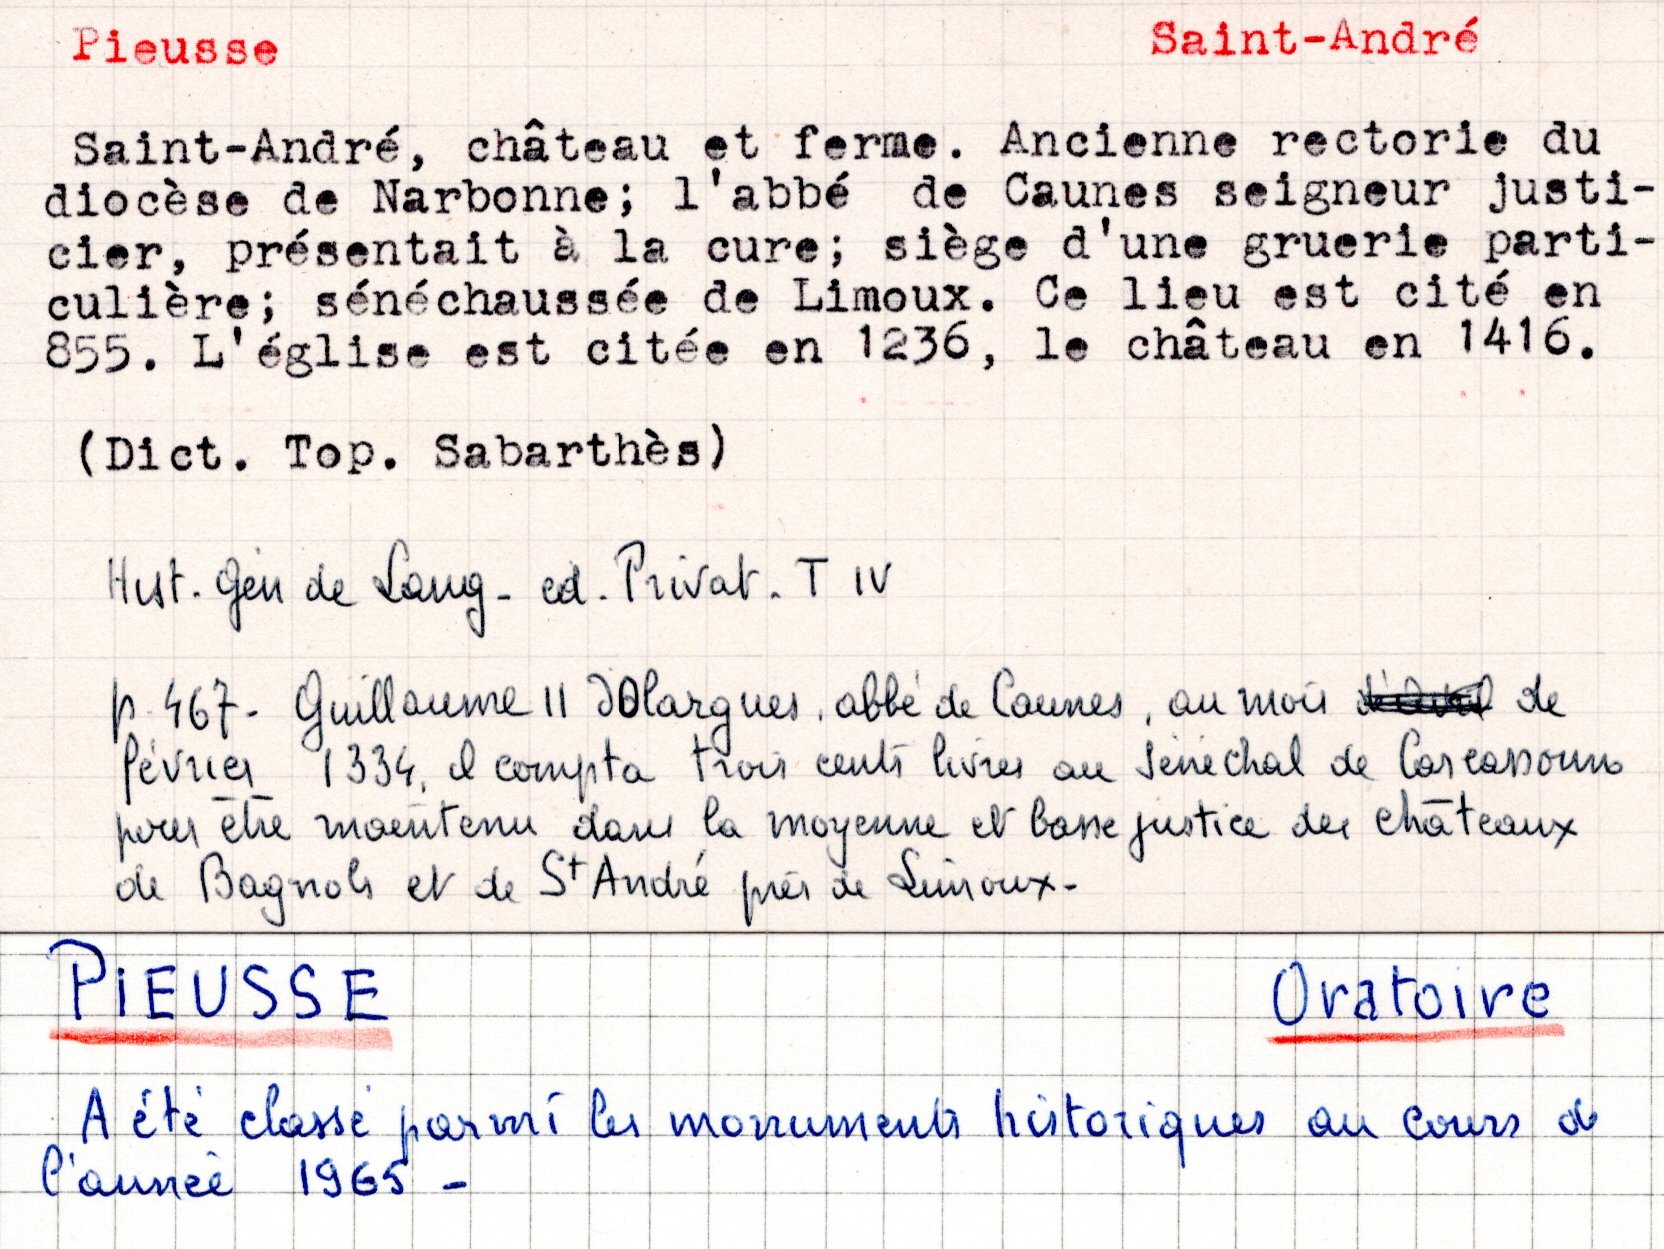 Pieusse Saint-André
Saint-André, château et ferme. Ancienne rectorie du
diocèse de Narbonne; l'abbé de Caunes seigneur justi-
cier, présentait à la cure; siège d'une gruerie parti-
culière; sénéchaussée de Limoux. Ce lieu est cité en
855. L'église est citée en 1236, le château en 1416.
(Dict. Top. Sabarthès)
Hist. Gén de Lang - ed. Privat. T IV
p. 467 - Guillaume II d'Olargues, abbé de Caunes, au mois de
février 1334, il compta trois cents livres au sénéchal de Carcassonne
pour être maintenu dans la moyenne et basse justice des châteaux
de Bagnols et de St André près de Limoux -
PIEUSSE Oratoire
A été classé parmi les monuments historiques au cours de
l'année 1965 -